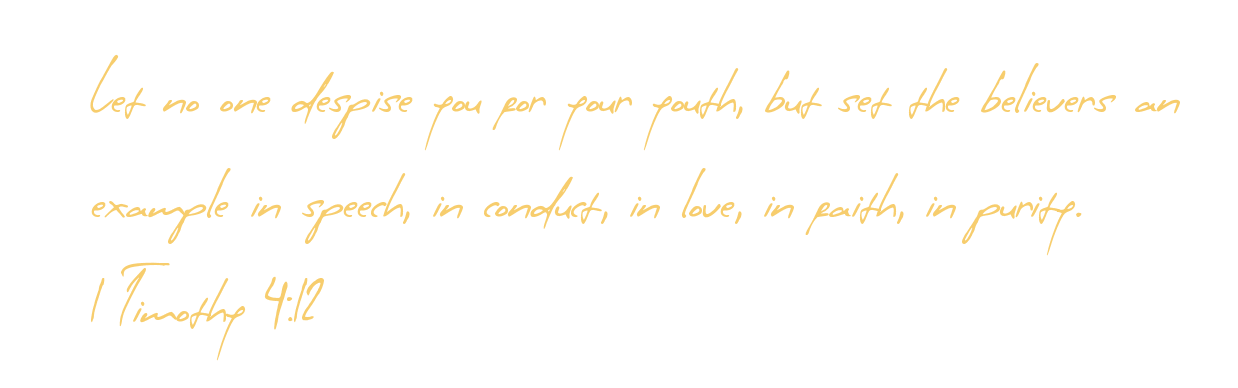 Let no one despise you for your youth, but set the believers an
example in speech, in conduct, in love, in faith, in purity.
1 Timothy 4:12